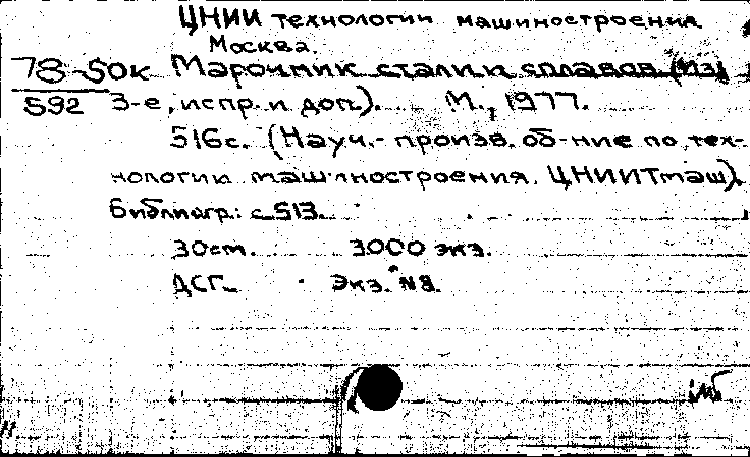 ЦНИИ технологии машиностроения.
Москва.
78-50к Марочник стали и сплавов (Изд.
592 3-е, испр. и доп.). М., 1977.
516с. (Науч.- произв. об-ние по тех-
нологии машиностроения. ЦНИИТмаш).
Библиогр.: с 513.
30 см. 3000 экз.
ДСП Экз. №8.